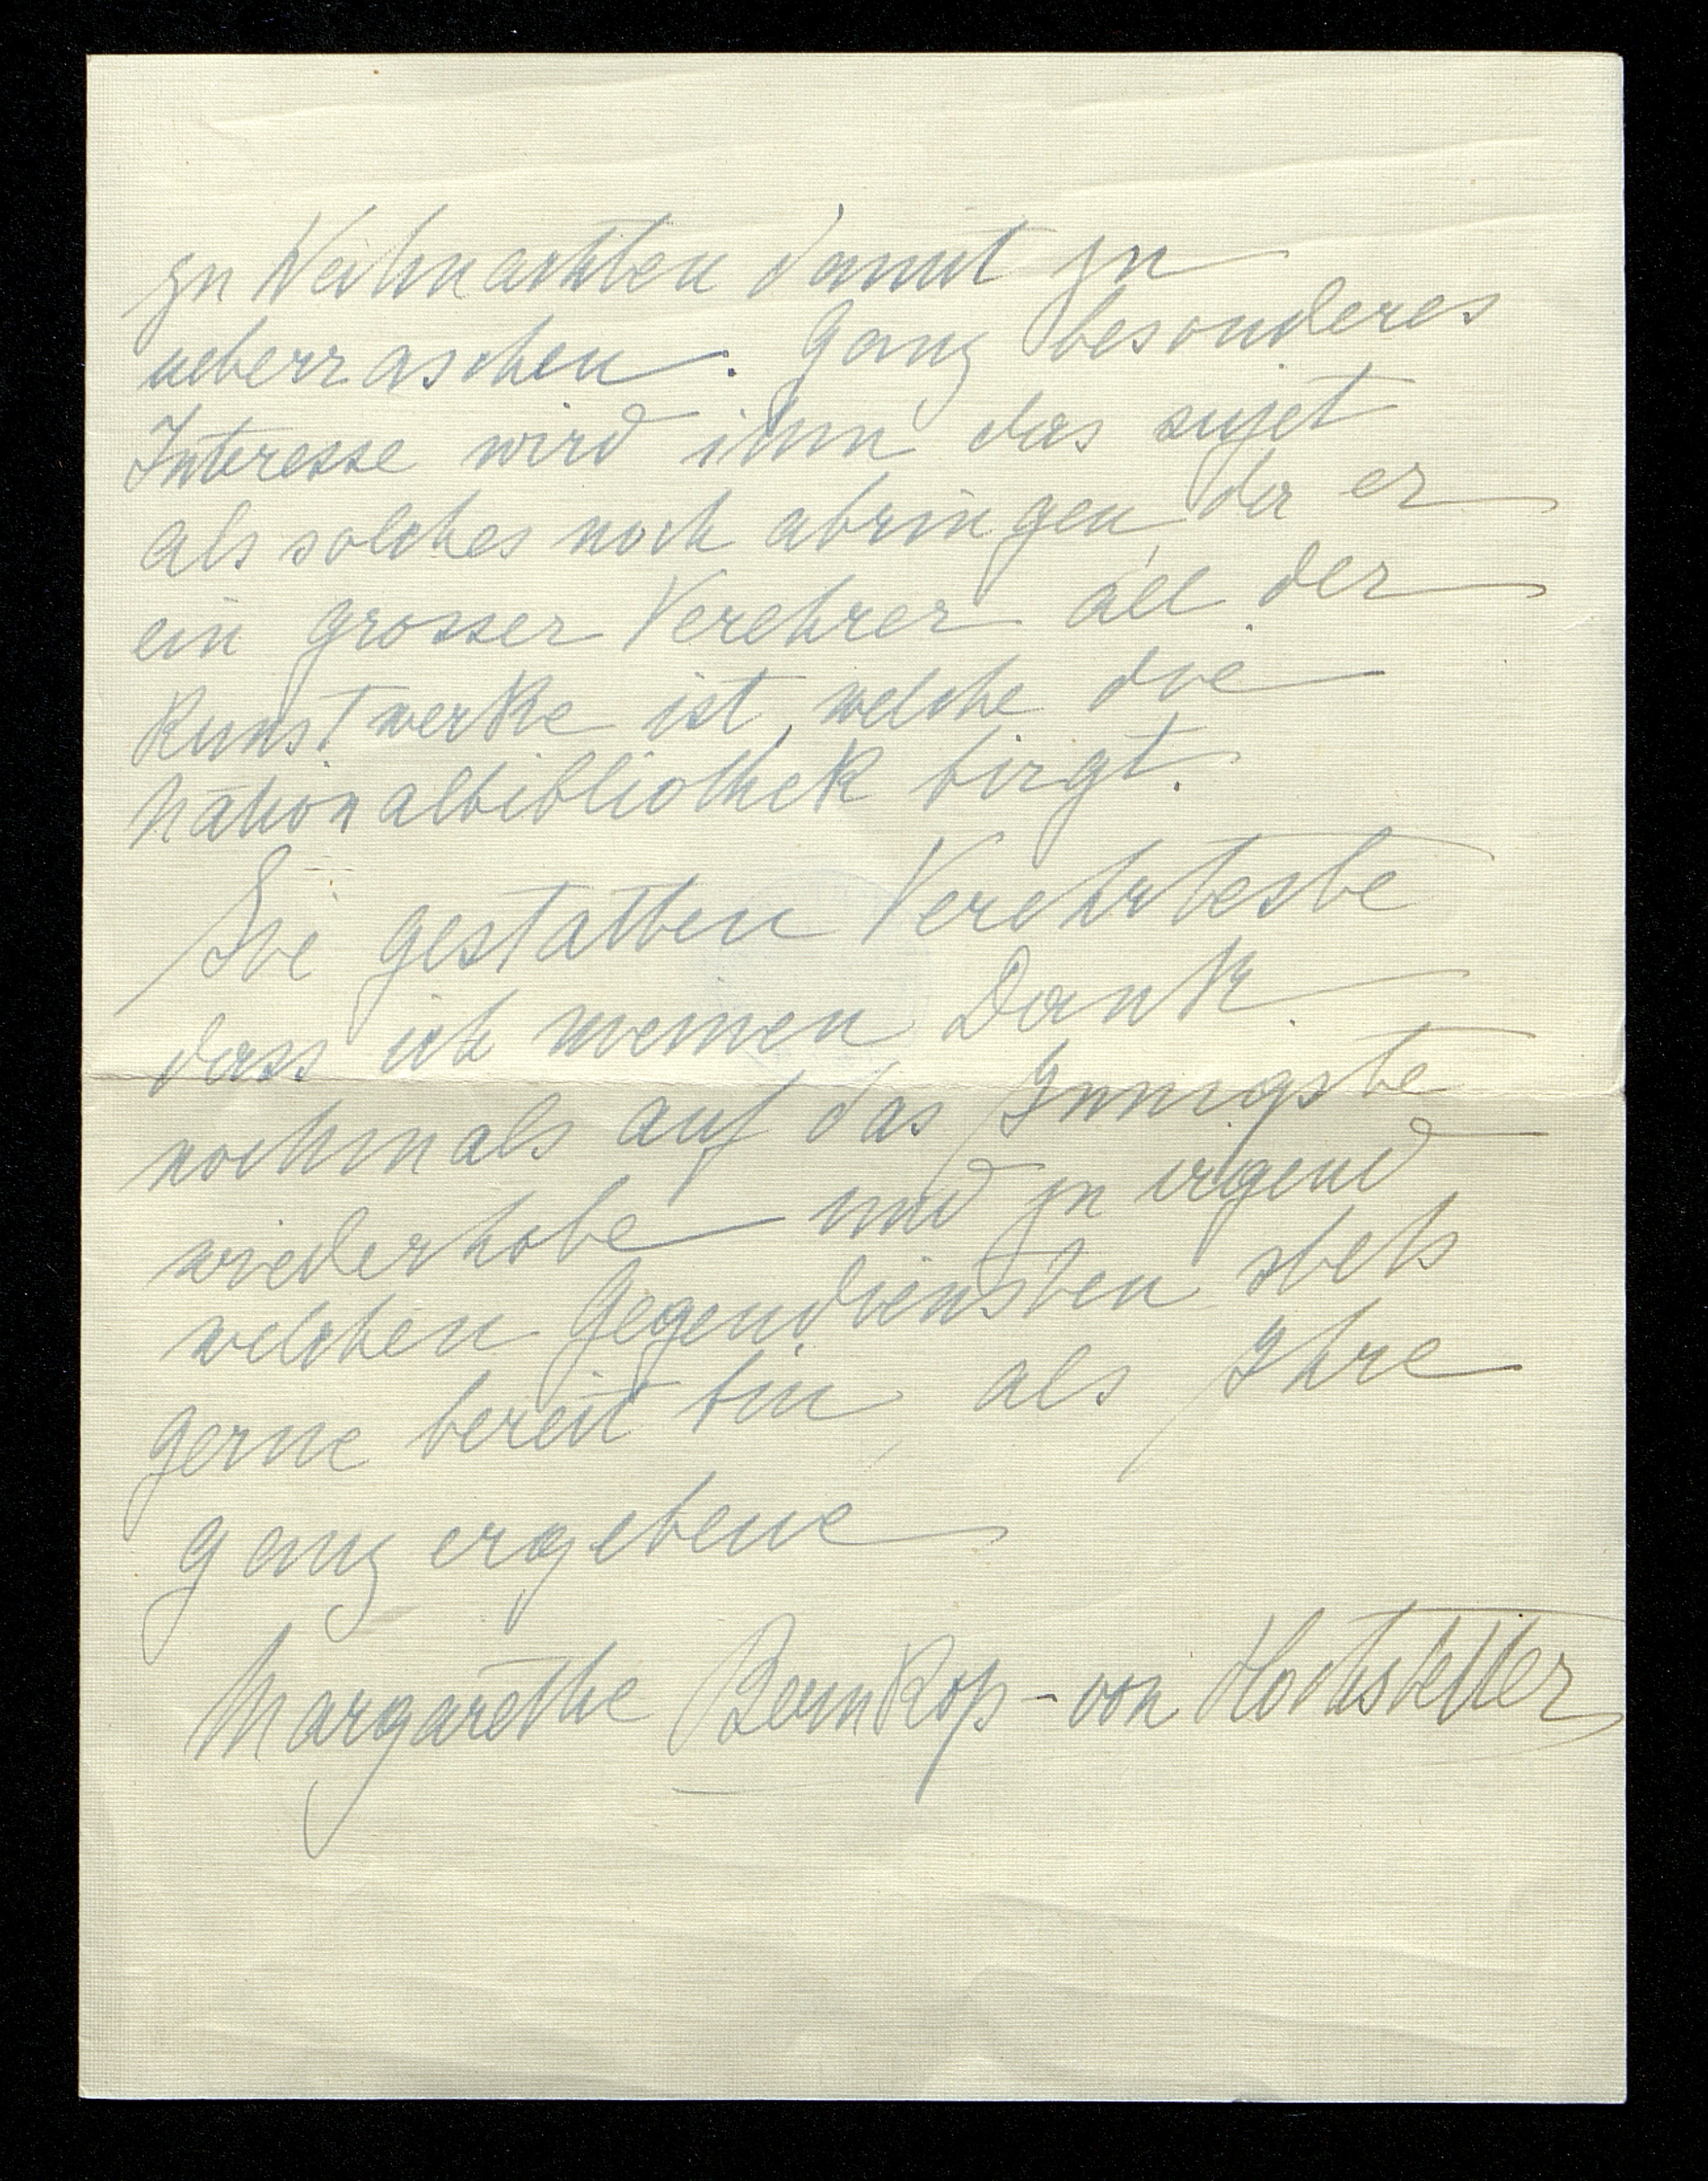 zu Weihnachten damit zu
ueberraschen. Ganz besonderes
Interesse wird ihm das sujet
als solches noch abringen, da er
ein grosser Verehrer all der
Kunstwerke ist, welche die
Nationalbibliothek birgt.
Sie gestatten Verehrteste
dass ich meinen Dank
nochmals auf das Innigste
wiederhole und zu irgend
welchen Gegendiensten stets
gerne bereit bin, als Ihre
ganz ergebene
Margarethe Bernkop-von Hochstetter